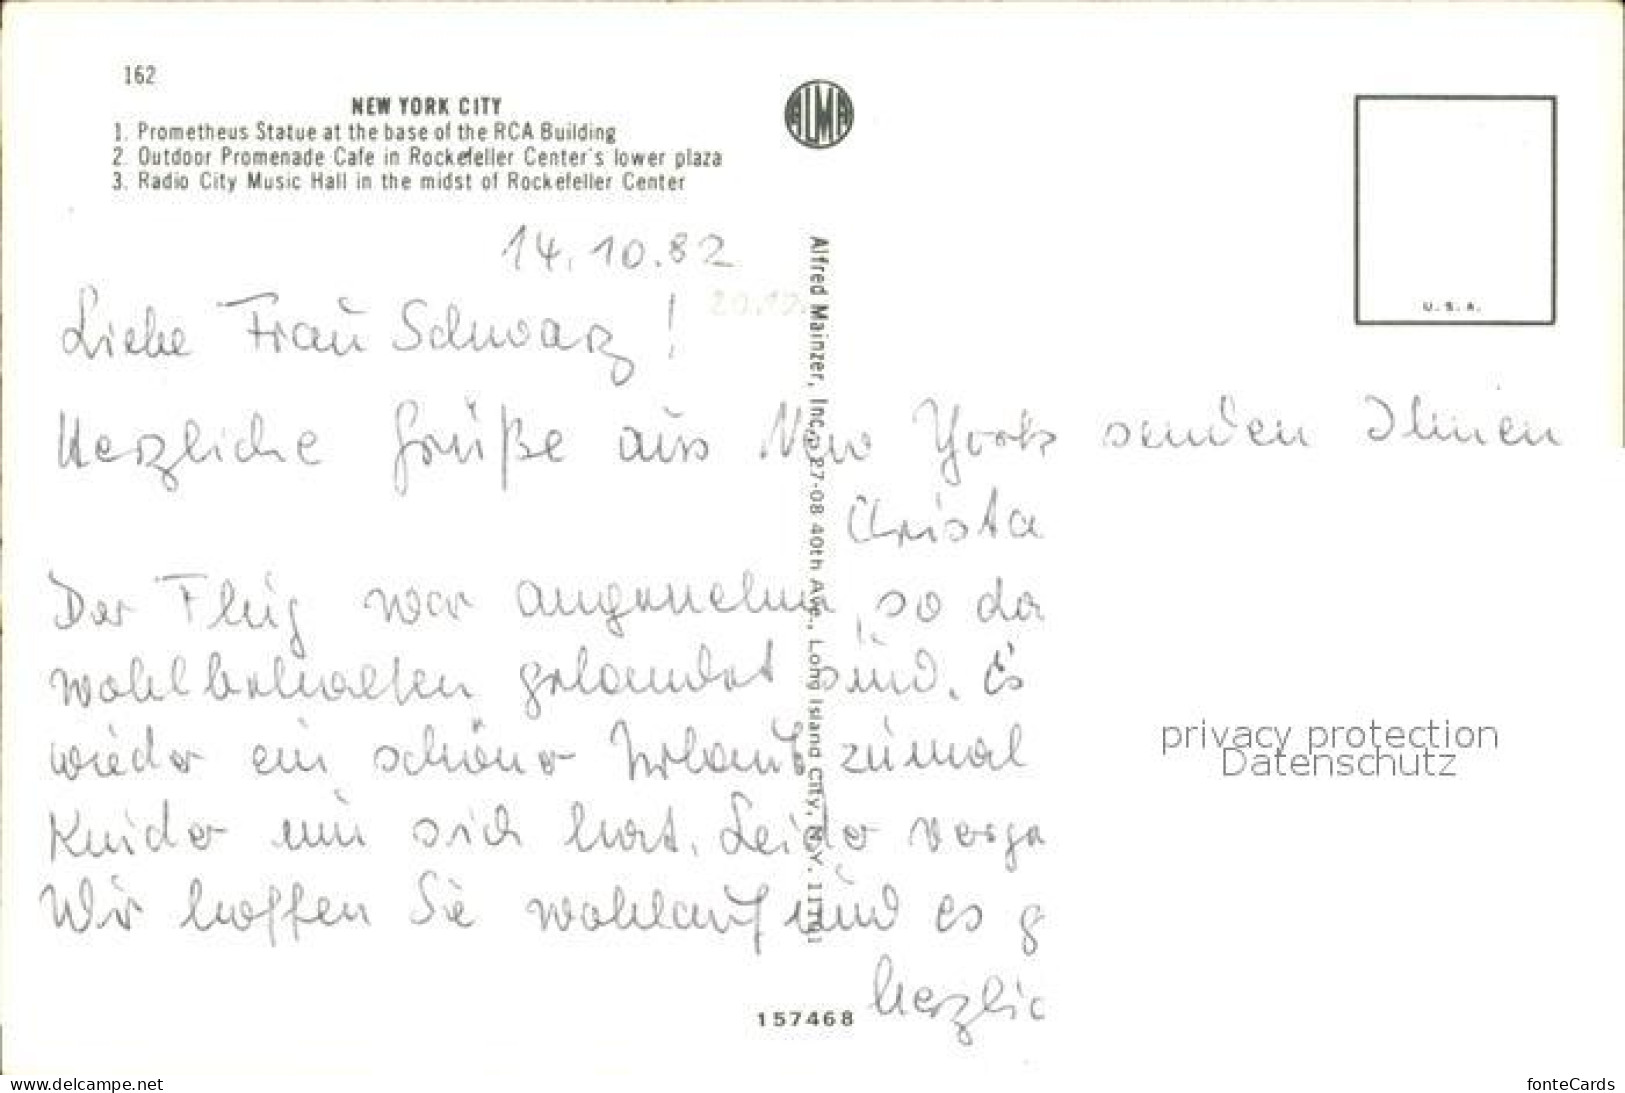 162
NEW YORK CITY
1. Prometheus Statue at the base of the RCA Building
2. Outdoor Promenade Cafe in Rockefeller Center's lower plaza
3. Radio City Music Hall in the midst of Rockefeller Center
ALMA
14.10.82
Liebe Frau Schwarz!
Herzliche Grüße aus New York senden Ihnen
Christa
Der Flug war angenehm, so da
wohlbehalten gelandet sind. Es
wieder ein schöner Urlaub zumal
Kinder um sich hat. Leider verga
Wir hoffen Sie wohlauf und es g
Herzlic
Alfred Mainzer, Inc., 27-08 40th Ave., Long Island City, N.Y. 11101
157468
U.S.A.
privacy protection
Datenschutz
www.delcampe.net
fonteCards